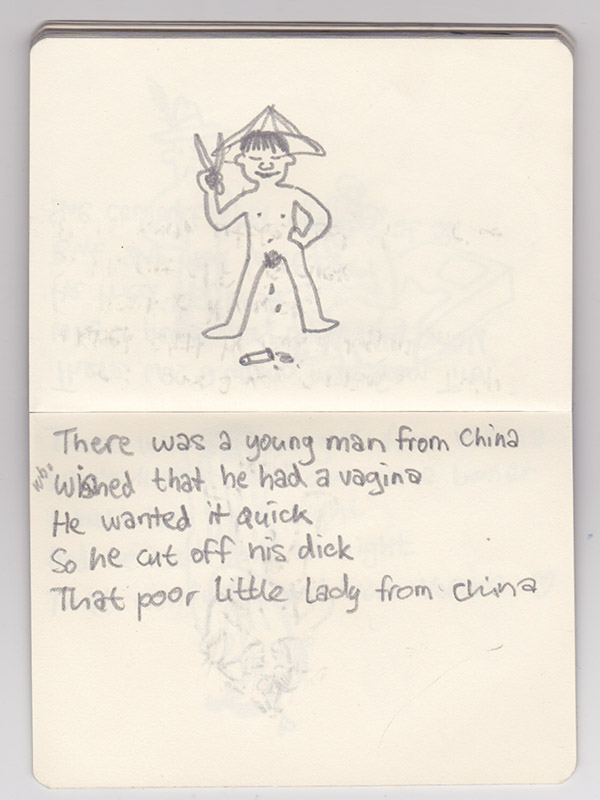 There was a young man from China
who Wished that he had a vagina
He wanted it quick
So he cut off his dick
That poor little lady from china